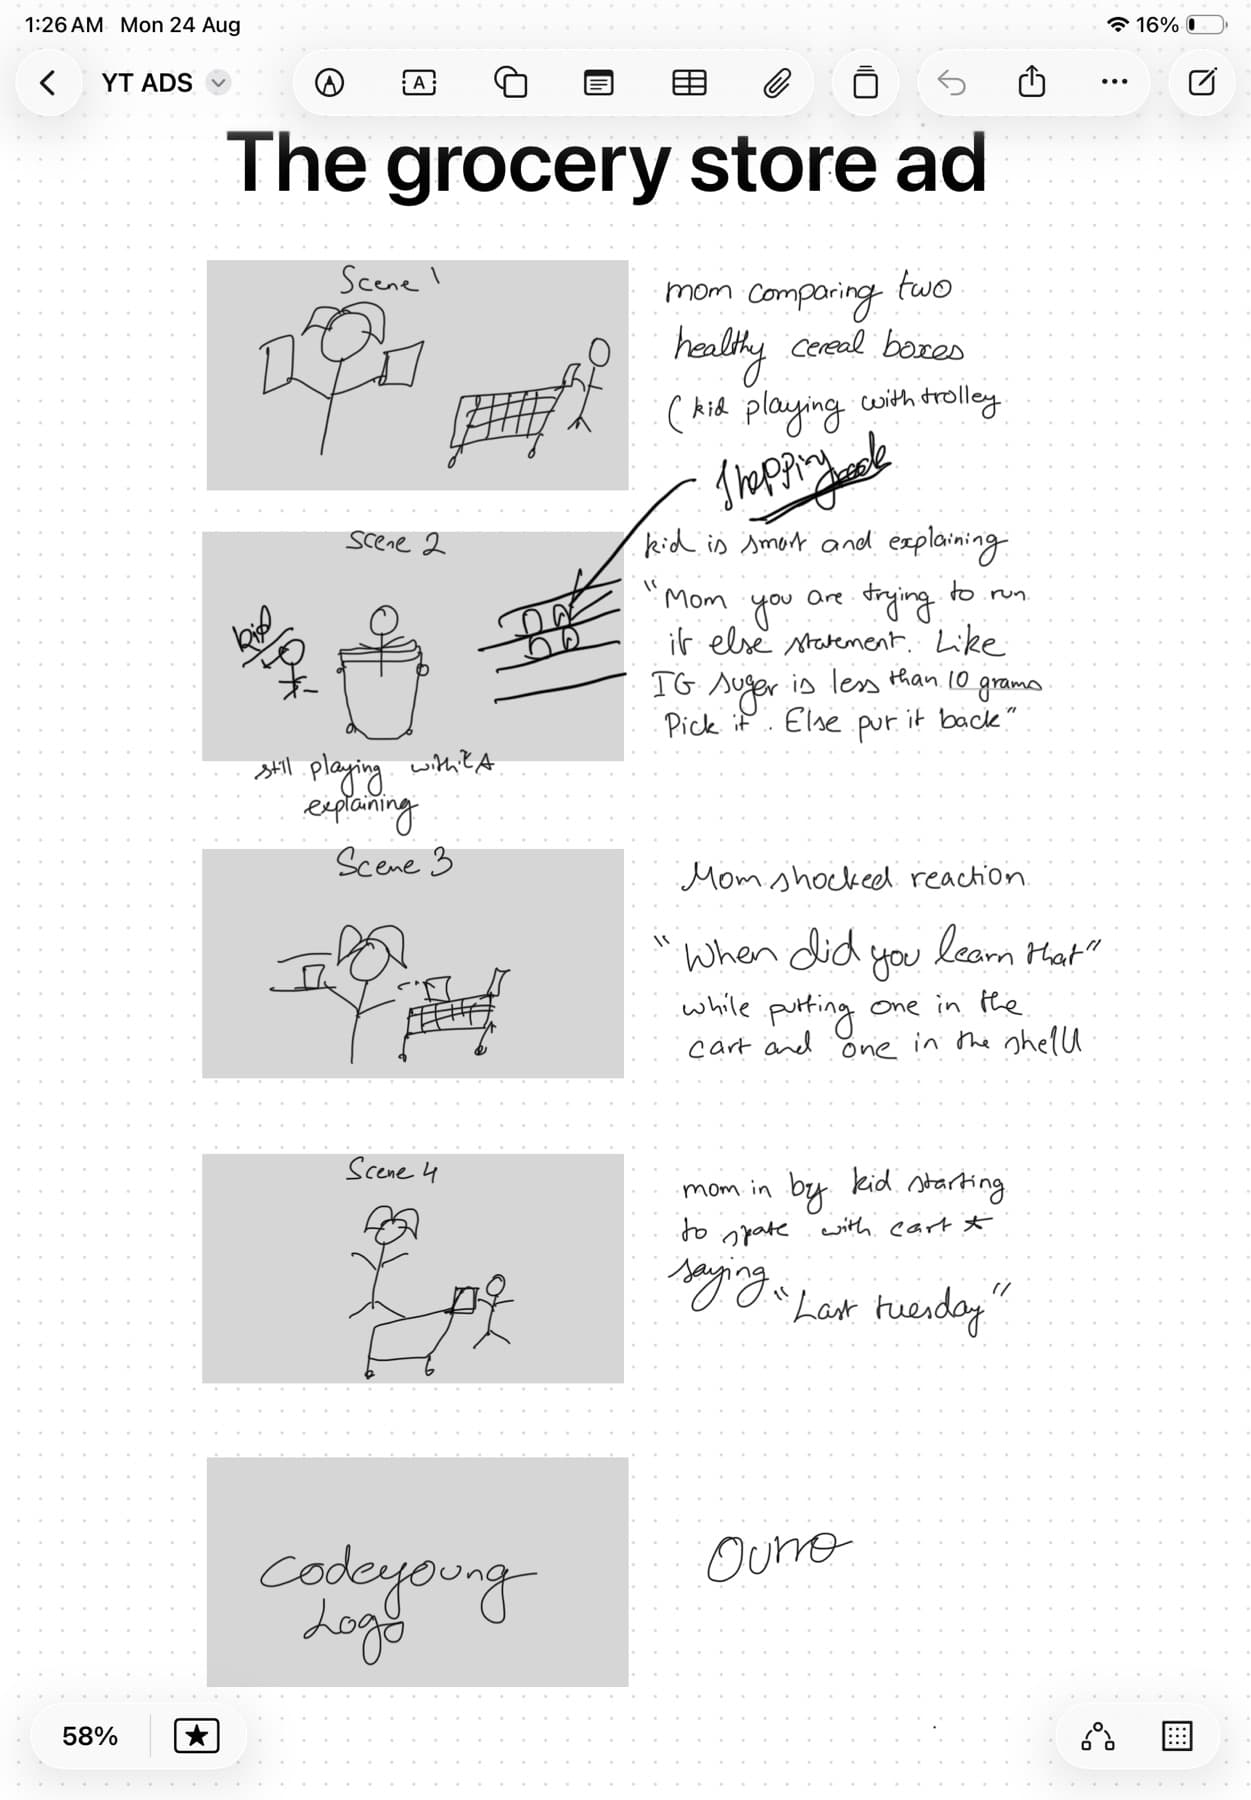 1:26 AM Mon 24 Aug
16%
YT ADS
The grocery store ad
Scene 1
mom comparing two
healthy cereal boxes
( kid playing with trolley
Shopping
Scene 2
kid
kid is smart and explaining
"Mom you are trying to run
if else statement. Like
IG suger is less than 10 grams
Pick it . Else put it back"
still playing with it &
explaining
Scene 3
Mom shocked reaction
"When did you learn that"
while putting one in the
cart and one in the shelf
Scene 4
mom in by kid starting
to skate with cart &
saying
"Last tuesday"
Codeyoung
Logo
Outro
58%